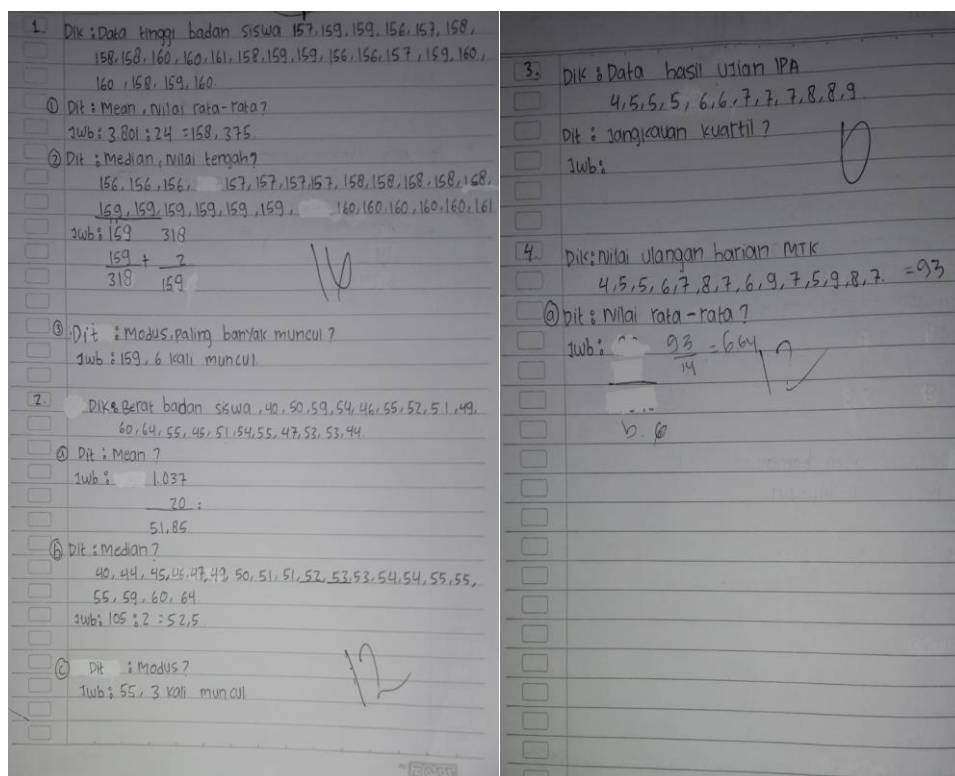 1. Dik : Data tinggi badan siswa 157, 159, 159, 156, 157, 158,
158, 158, 160, 160, 161, 158, 159, 159, 156, 156, 157, 159, 160,
160, 158, 159, 160.
① Dit : Mean, Nilai rata-rata?
Jwb : 3.801 : 24 = 158, 375.
② Dit : Median, Nilai tengah?
156, 156, 156, 157, 157, 157, 157, 158, 158, 158, 158, 158,
159, 159, 159, 159, 159, 159, 160, 160, 160, 160, 160, 161
Jwb : 159 318
159 + 2
318 159
14
③ Dit : Modus, paling banyak muncul?
Jwb : 159, 6 kali muncul
2. Dik : Berat badan siswa, 40, 50, 59, 54, 46, 55, 52, 51, 49,
60, 64, 55, 45, 51, 54, 55, 47, 53, 53, 44
ⓐ Dit : Mean ?
Jwb : 1.037
20 :
51,85
ⓑ Dit : Median ?
40, 44, 45, 46, 47, 49, 50, 51, 51, 52, 53, 53, 54, 54, 55, 55,
55, 59, 60, 64
Jwb : 105 : 2 : 52,5
ⓒ Dit : Modus ?
Jwb : 55, 3 kali muncul
12
3. Dik : Data hasil ujian IPA
4, 5, 5, 5, 6, 6, 7, 7, 7, 8, 8, 9
Dit : Jangkauan kuartil ?
Jwb :
0
4. Dik : Nilai ulangan harian MTK
4, 5, 5, 6, 7, 8, 7, 6, 9, 7, 5, 9, 8, 7. = 93
ⓐ Dit : Nilai rata-rata ?
Jwb : 93 = 664
14
12
b.